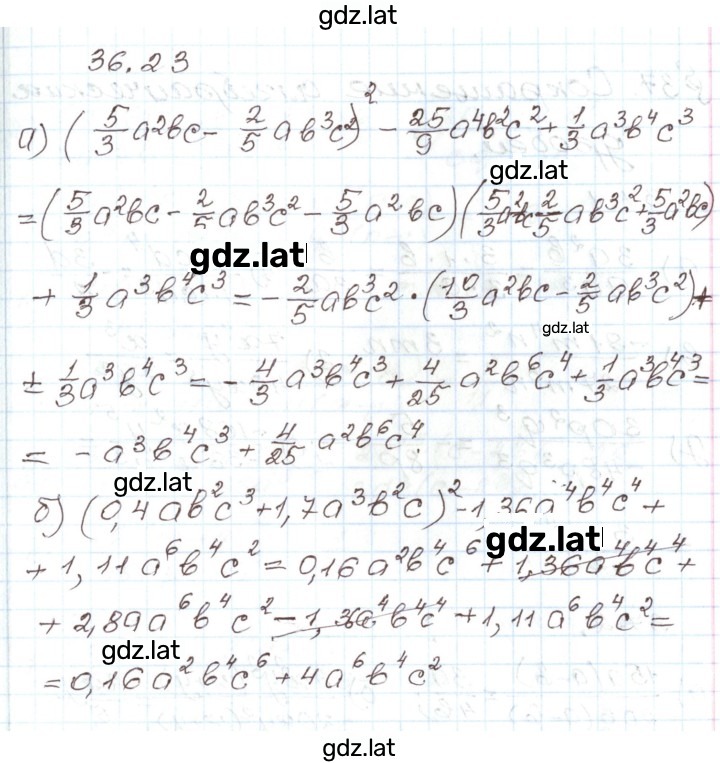 gdz.lat
36.23
а) (5/3 a²bc − 2/5 ab³c²)² − 25/9 a⁴b²c² + 1/3 a³b⁴c³
gdz.lat
= (5/3 a²bc − 2/5 ab³c² − 5/3 a²bc)(5/3 a²bc − 2/5 ab³c² + 5/3 a²bc)
gdz.lat
+ 1/3 a³b⁴c³ = − 2/5 ab³c² · (10/3 a²bc − 2/5 ab³c²) +
gdz.lat
± 1/3 a³b⁴c³ = − 4/3 a³b⁴c³ + 4/25 a²b⁶c⁴ + 1/3 a³b⁴c³ =
= − a³b⁴c³ + 4/25 a²b⁶c⁴
gdz.lat
б) (0,4ab²c³ + 1,7a³b²c)² − 1,36a⁴b⁴c⁴ +
gdz.lat
+ 1,11a⁶b⁴c² = 0,16a²b⁴c⁶ + 1,36a⁴b⁴c⁴ +
+ 2,89a⁶b⁴c² − 1,36a⁴b⁴c⁴ + 1,11a⁶b⁴c² =
gdz.lat
= 0,16a²b⁴c⁶ + 4a⁶b⁴c²
gdz.lat